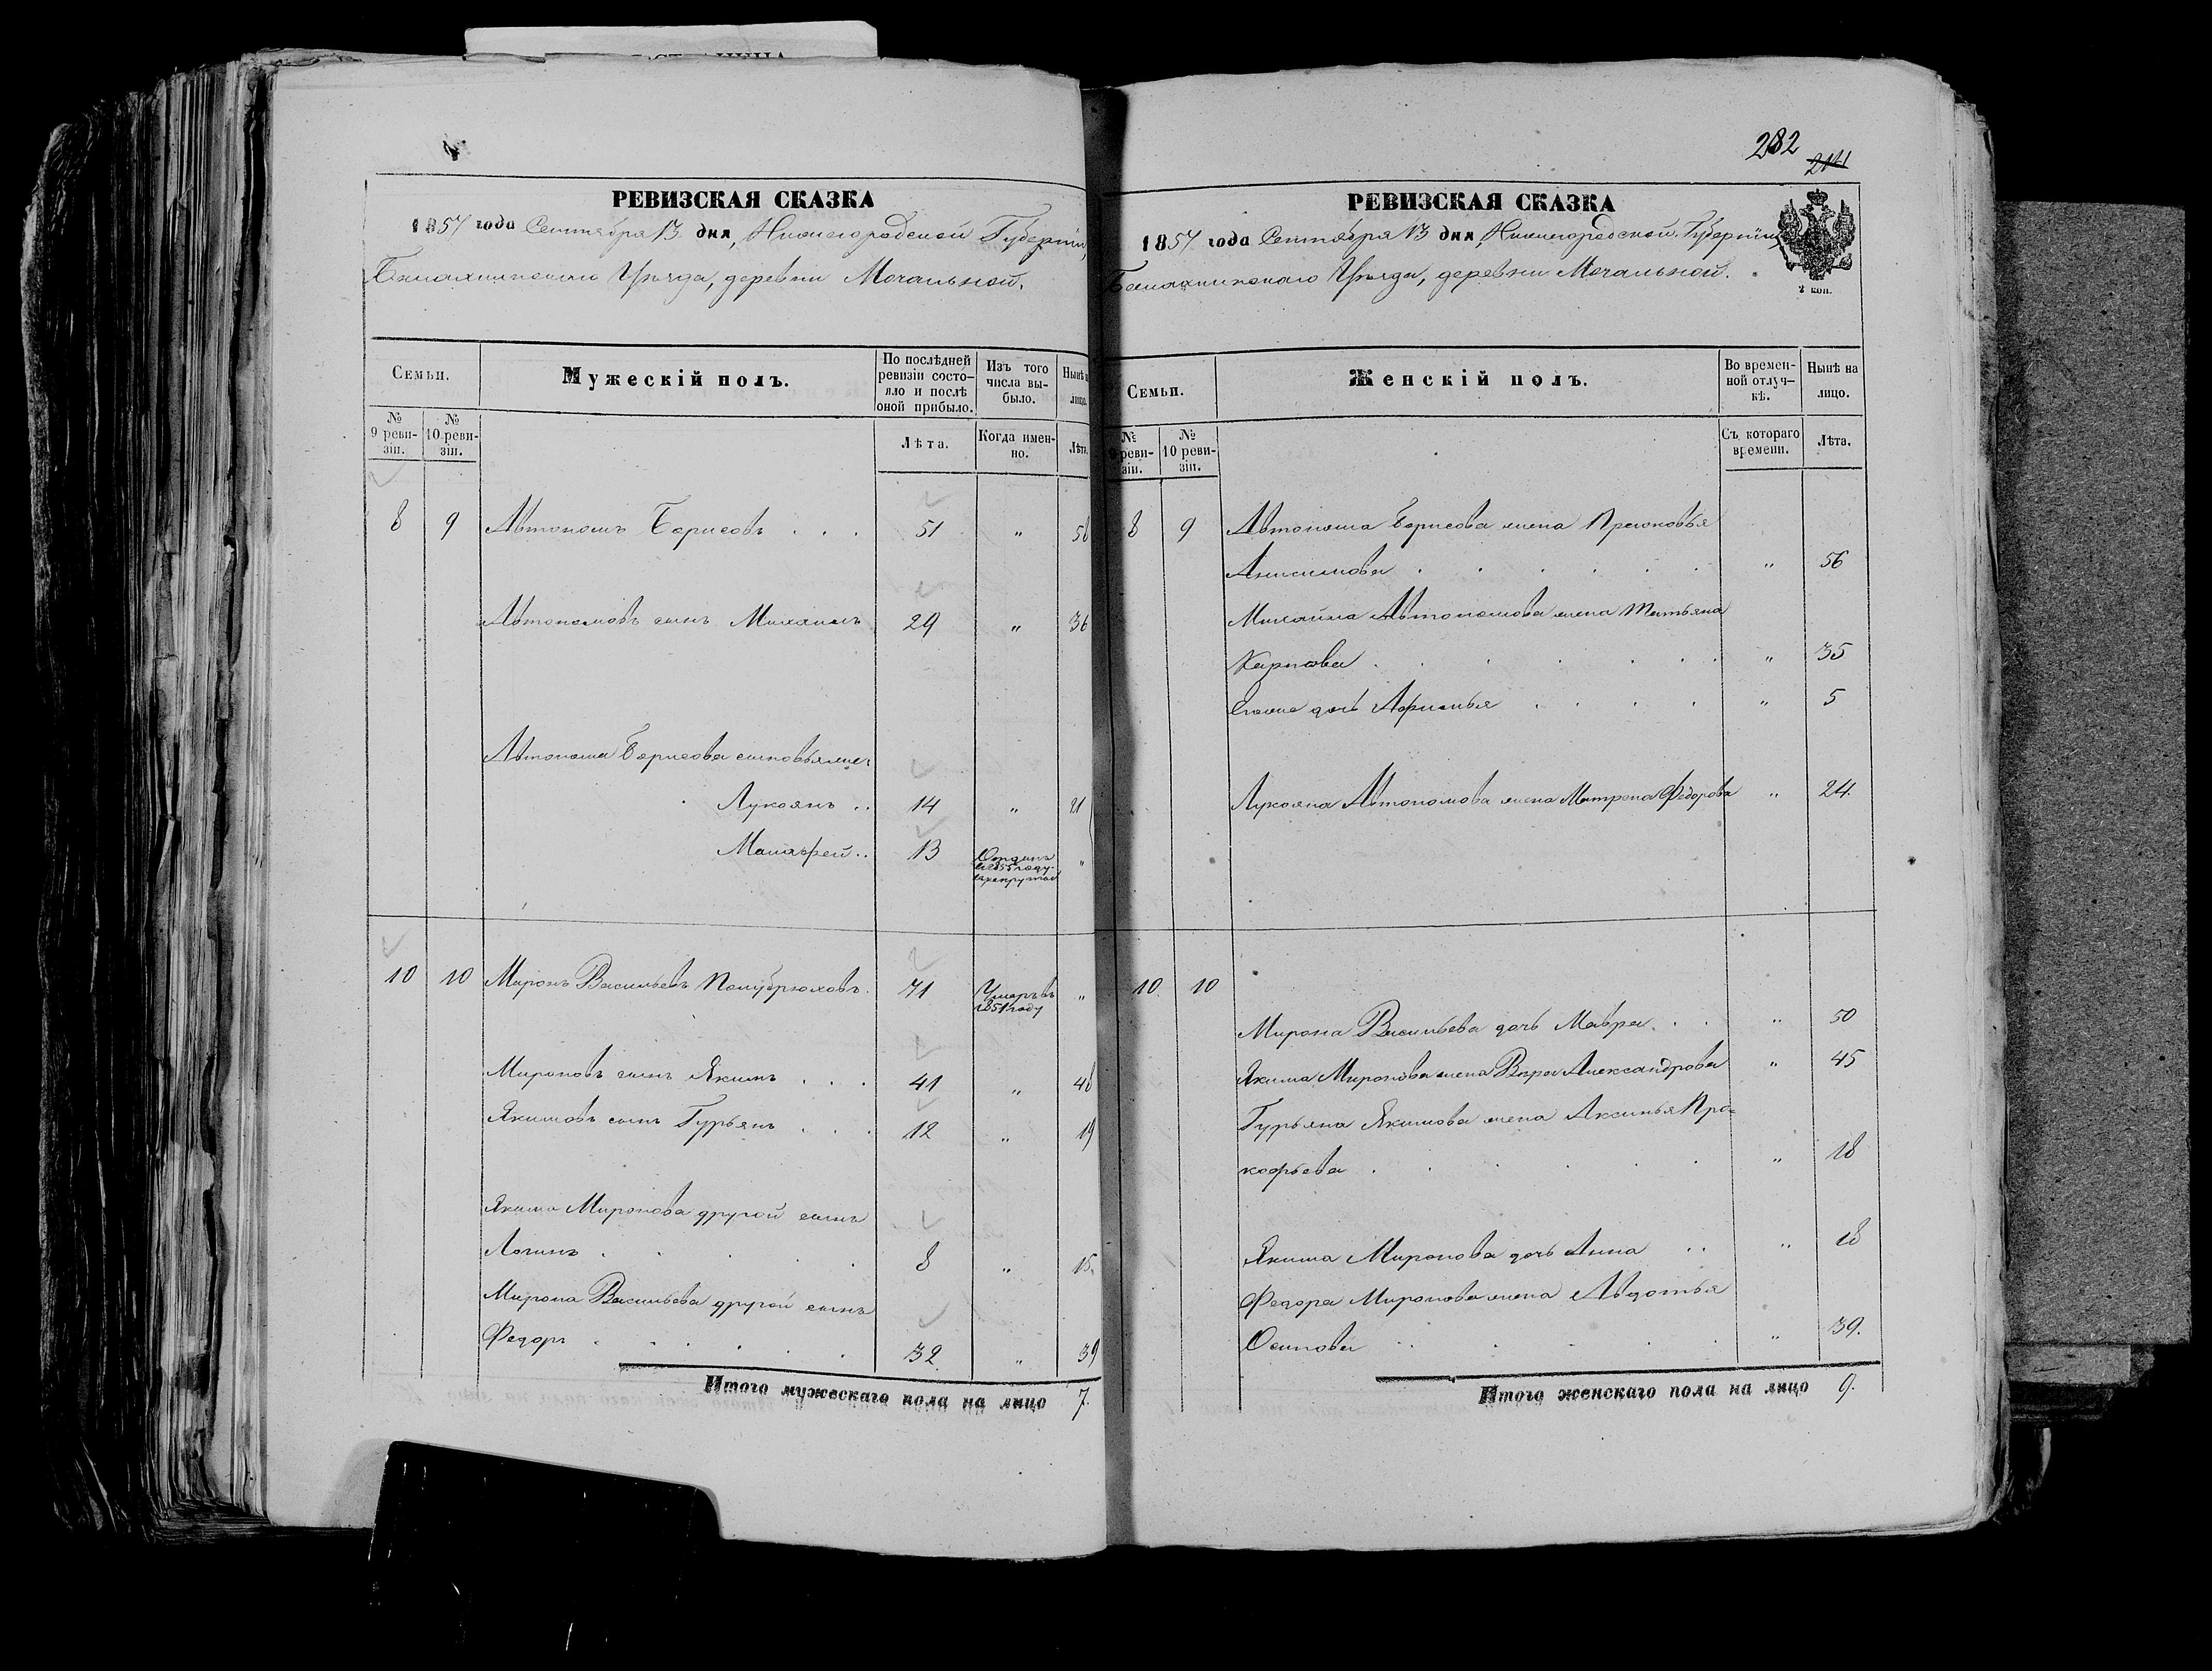 282
214
РЕВИЗСКАЯ СКАЗКА
1857 года Сентября 13 дня, Нижегородской Губерніи,
Балахнинскаго Уѣзда, деревни Мочальной.
Семьи.
Мужескій полъ.
По послѣдней ревизіи состояло и послѣ оной прибыло.
Изъ того числа выбыло.
Нынѣ на лицо.
№ 9 ревизіи.
№ 10 ревизіи.
Лѣта.
Когда именно.
Лѣта.
8 9 Автономъ Борисовъ . . . 51 " 58
Автономовъ сынъ Михаилъ 29 " 36
Автонома Борисова сыновья
Лукоянъ . . 14 " 21
Малафей . . 13 Отданъ въ 1855 году въ рекруты "
10 10 Миронъ Васильевъ Полубрюховъ. 71 Умеръ въ 1851 году "
Мироновъ сынъ Якимъ . . . 41 " 48
Якимовъ сынъ Гурьянъ . . . 12 " 19
Якима Миронова другой сынъ
Логинъ . . . 8 " 15.
Мирона Васильева другой сынъ
Федоръ . . . . . 32 " 39
Итого мужескаго пола на лицо 7.
РЕВИЗСКАЯ СКАЗКА
1857 года Сентября 13 дня, Нижегородской Губерніи,
Балахнинскаго Уѣзда, деревни Мочальной.
2 коп.
Семьи.
Женскій полъ.
Во временной отлучкѣ.
Нынѣ на лицо.
№ 9 ревизіи.
№ 10 ревизіи.
Съ котораго времени.
Лѣта.
8 9 Автонома Борисова жена Прасковья
Анисимова . . . . . . " 56
Михайла Автономова жена Татьяна
Карпова . . . . . . . " 35
Евоная дочь Афимья . . . . " 5
Лукояна Автономова жена Матрена Федорова " 24.
10 10
Мирона Васильева дочь Мавра . . " 50
Якима Миронова жена Вѣра Александрова " 45
Гурьяна Якимова жена Аксинья Про=
кофьева . . . . . " 18
Якима Миронова дочь Анна . . " 18
Федора Миронова жена Авдотья
Осипова . . . . . " 39.
Итого женскаго пола на лицо 9.